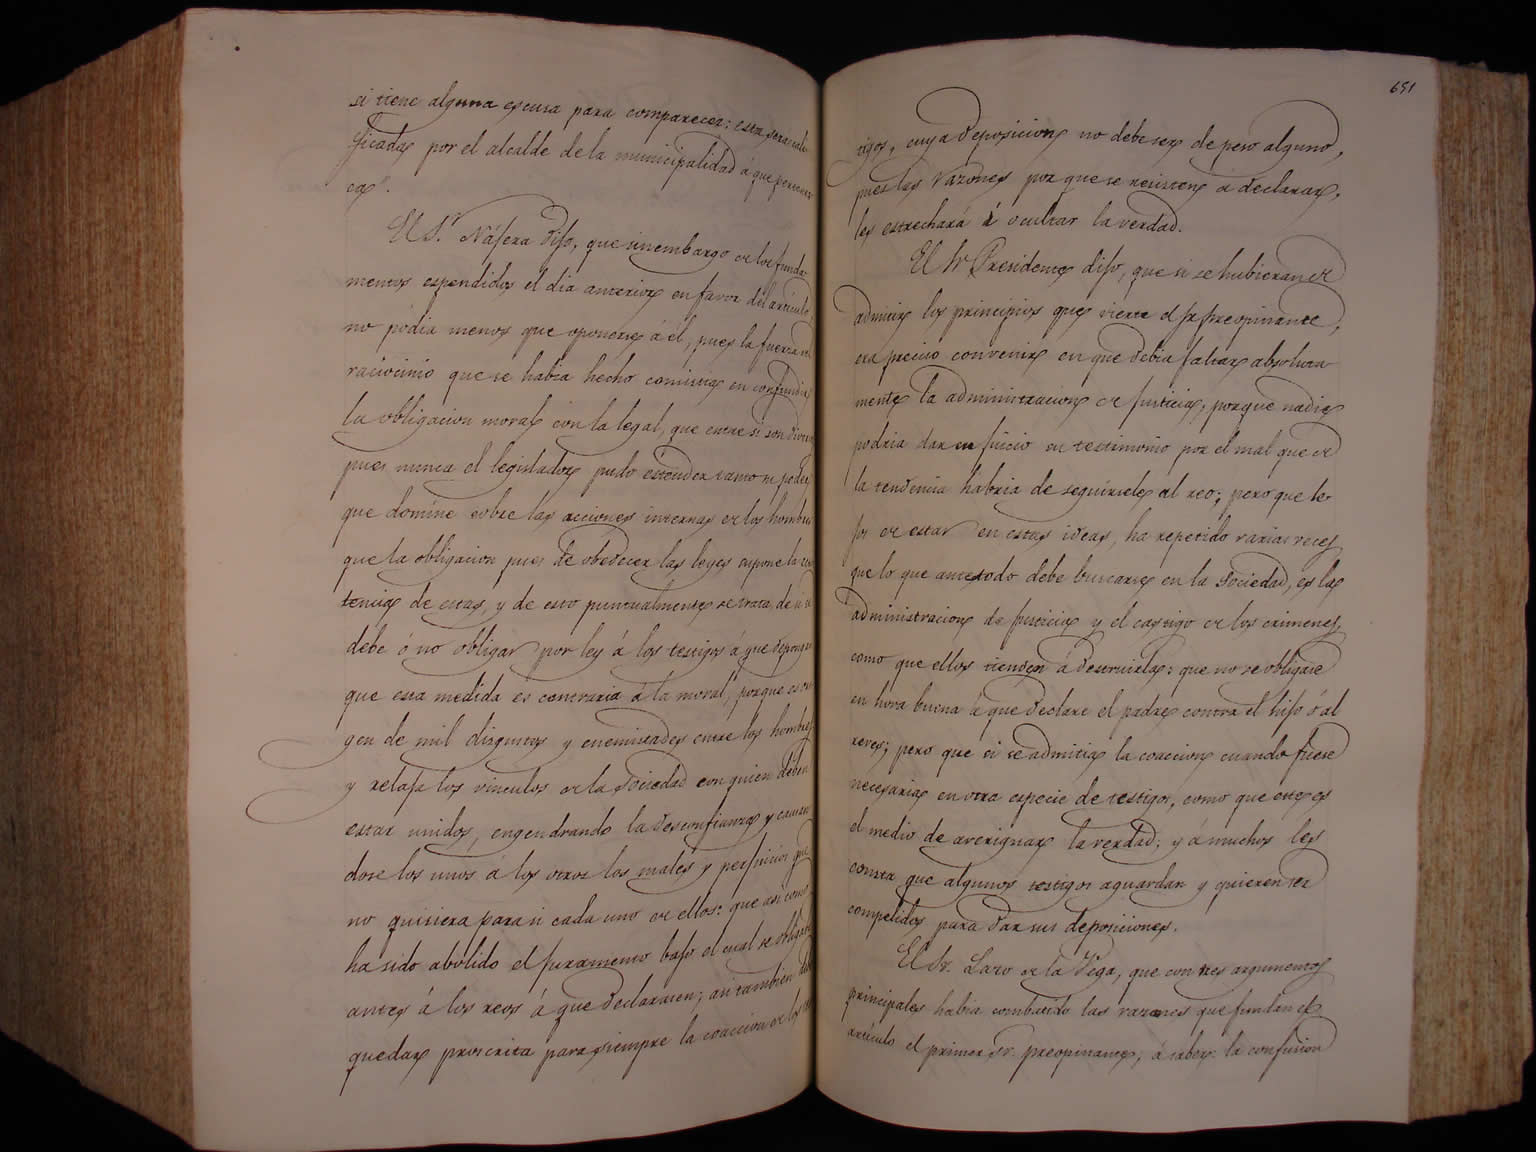 si tiene alguna escusa para comparecer: esta será cali-
ficada por el alcalde de la municipalidad á que pertenez-
ca".
El S.r Nájera dijo, que sinembargo de los funda-
mentos espendidos el dia anterior en favor del articulo,
no podia menos que oponerse á él, pues la fuerza del
raciocinio que se habia hecho consistia en confundir
la obligacion moral con la legal, que entre si son diver
pues nunca el legislador pudo estender tanto su poder
que domine sobre las acciones internas de los hombres
que la obligacion pues de obedecer las leyes supone la
tencia de estas, y de esto puntualmente se trata, de si se
debe ó no obligar por ley á los testigos á que depongan
que esta medida es contraria á la moral, porque es ori
gen de mil disgustos y enemistades entre los hombres
y relaja los vinculos de la Sociedad con quien deben
estar unidos, engendrando la desconfianza y causan
dose los unos á los otros los males y perjuicios que
no quisiera para si cada uno de ellos: que asi como
ha sido abolido el juramento bajo el cual se obligaba
antes á los reos á que declarasen; asi tambien debe
quedar proscrita para siempre la coaccion de los tes
651
tigos, cuya deposicion no debe ser de peso alguno,
pues las razones por que se resisten á declarar,
les estrechará á ocultar la verdad.
El Sr. Presidente dijo, que si se hubieran de
admitir los principios que vierte el Sr. preopinante,
era preciso convenir en que debia faltar absoluta-
mente la administracion de justicia, porque nadie
podria dar en juicio su testimonio por el mal que de
la tendencia habria de seguirsele al reo; pero que le-
jos de estar en estas ideas, ha repetido varias veces
que lo que antetodo debe buscarse en la Sociedad, es la
administracion de justicia y el castigo de los crimenes,
como que ellos tienden á destruirla: que no se obligase
en hora buena á que declare el padre contra el hijo ó al
reves; pero que si se admitia la coaccion cuando fuese
necesaria en otra especie de testigos, como que este es
el medio de averiguar la verdad; y á muchos les
consta que algunos testigos aguardan y quieren ser
compelidos para dar sus deposiciones.
El Sr. Lazo de la Vega, que con tres argumentos
principales habia combatido las razones que fundan el
articulo el primer Sr. preopinante, á saber: la confusion